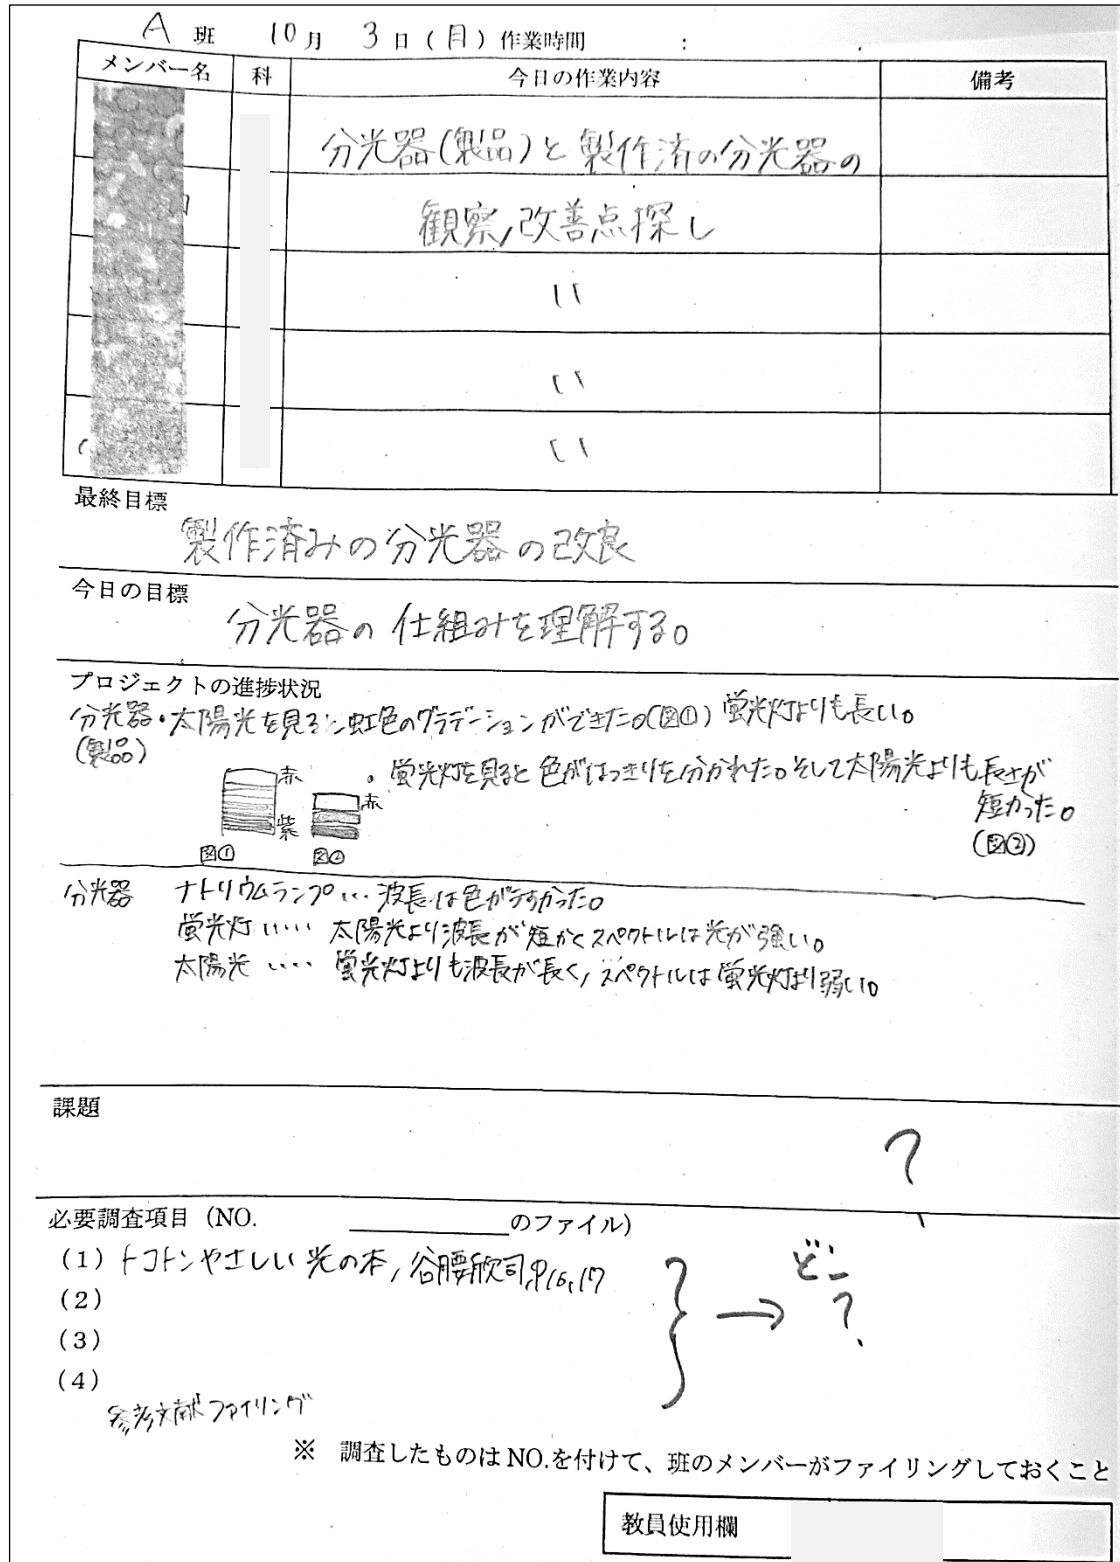 A 班 10月 3日(月)作業時間 :
メンバー名 科 今日の作業内容 備考
分光器(製品)と製作済の分光器の
観察,改善点探し
〃
〃
〃
最終目標
製作済みの分光器の改良
今日の目標
分光器の仕組みを理解する。
プロジェクトの進捗状況
分光器・太陽光を見ると虹色のグラデーションができた。(図①) 蛍光灯よりも長い。
(製品)
・蛍光灯を見ると色がはっきりと分かれた。そして太陽光よりも長さが
短かった。
(図②)
赤
紫
図①
赤
図②
分光器 ナトリウムランプ… 波長は色がうすかった。
蛍光灯…… 太陽光より波長が短かくスペクトルは光が強い。
太陽光 …… 蛍光灯よりも波長が長く,スペクトルは蛍光灯より弱い。
課題
?
必要調査項目(NO. のファイル)
(1)トコトンやさしい光の本,谷腰欣司,P16,17
(2)
(3)
(4)
→ どこ
?
参考文献ファイリング
※ 調査したものはNO.を付けて、班のメンバーがファイリングしておくこと
教員使用欄